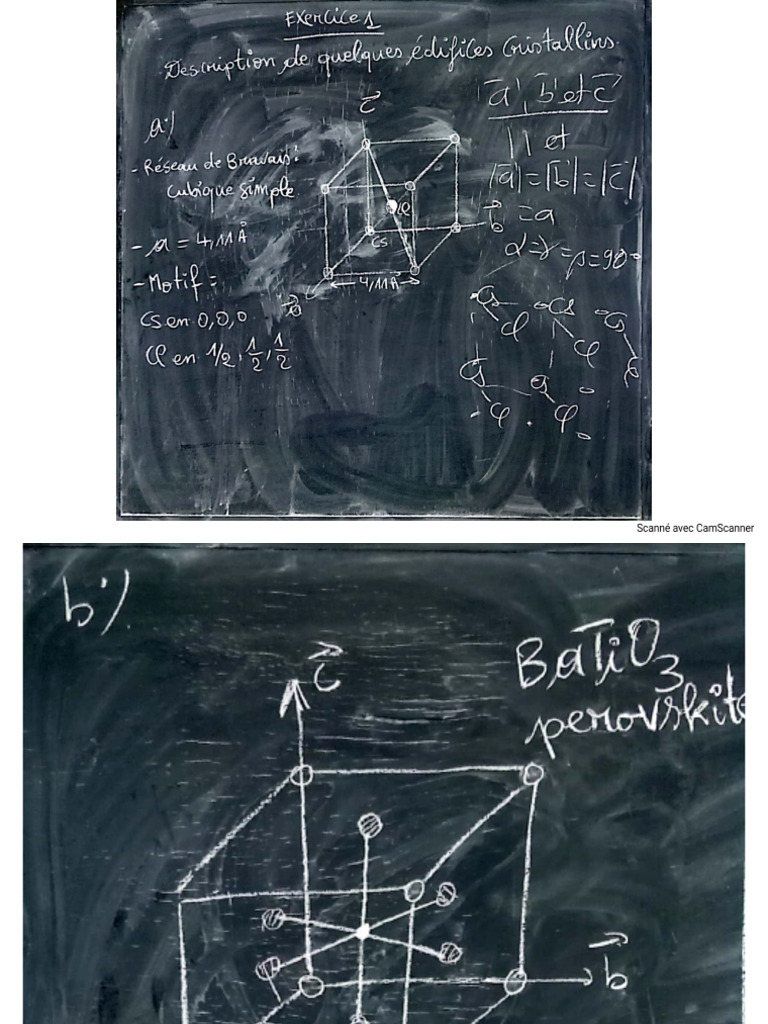 Exercice 1
Description de quelques édifices cristallins.
a)
- Réseau de Bravais:
cubique simple
- a = 4,11Å
- Motif =
Cs en 0,0,0
Cl en 1/2, 1/2, 1/2
c
Cl
Cs
4,11Å
b
a
a, b et c
et
|a|=|b|=|c|
=a
α=γ=β=90°
Cs Cs Cs
Cl Cl
Cs Cs
Cl Cl
Scanné avec CamScanner
b)
BaTiO3
perovskite
c
b